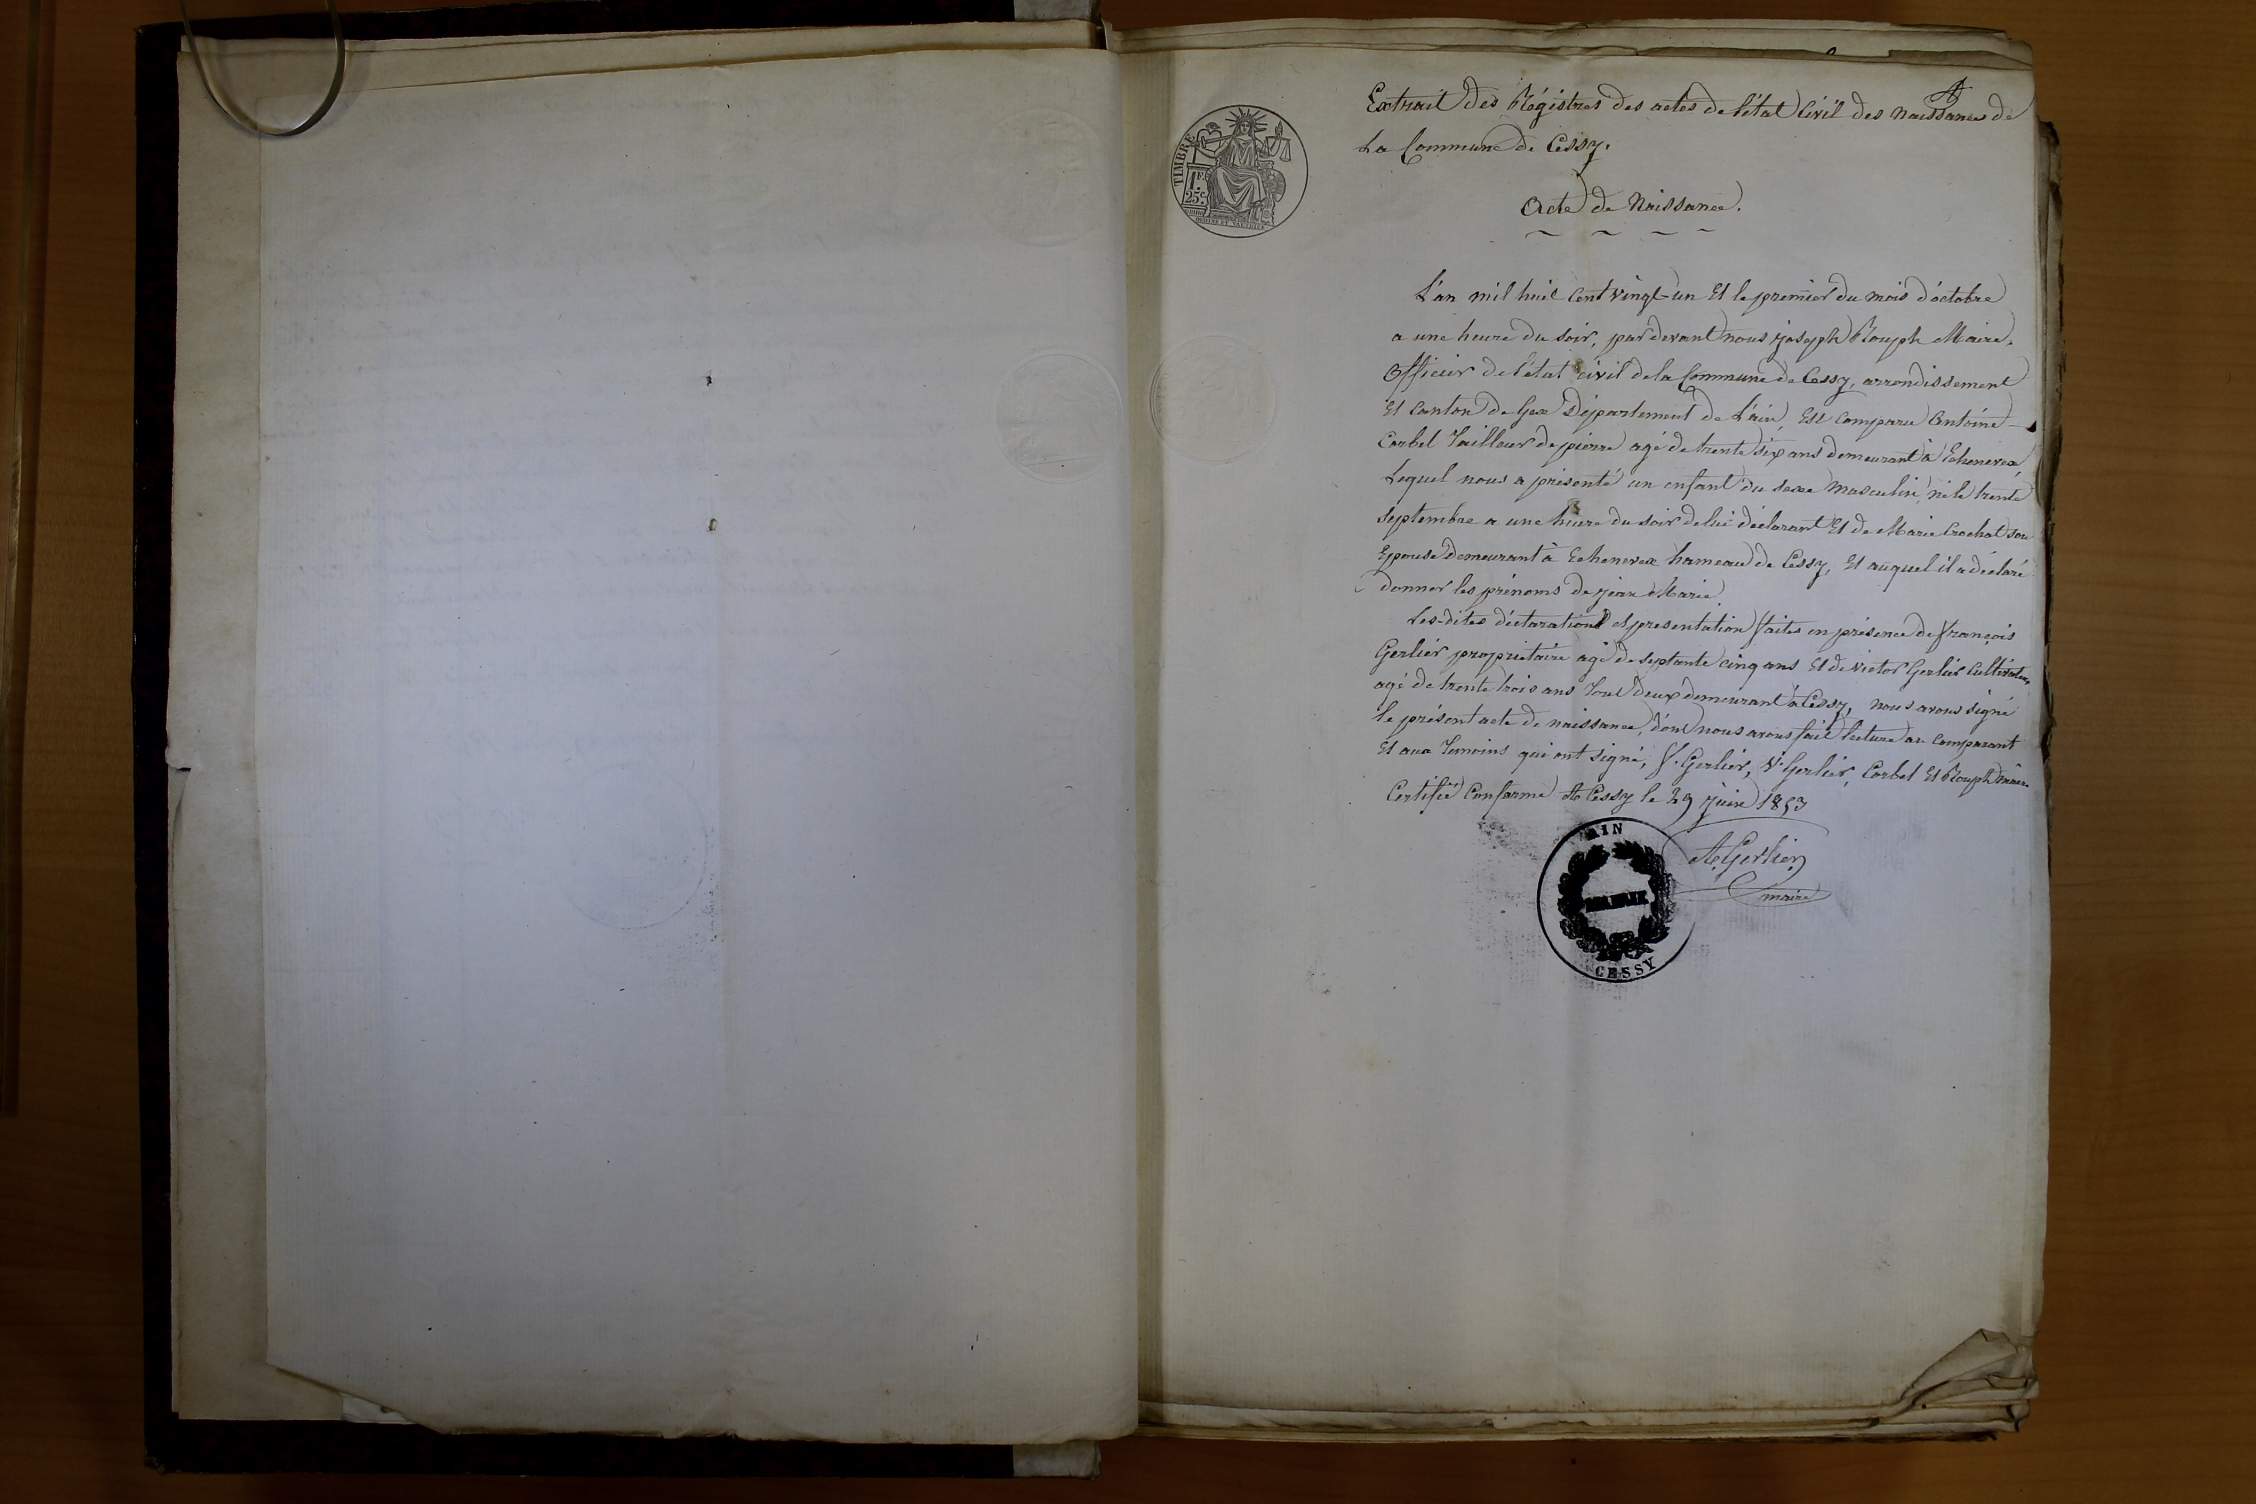 Extrait des Régistres des actes de l'état Civil des naissances de
La Commune de Cessy.
TIMBRE
1.F
25.c
Acte de Naissance.
L'an mil huit Cent vingt-un Et le premier du mois d'octobre
a une heure du soir, par devant nous joseph Rouph Maire.
Officier de l'état civil de la Commune de Cessy, arrondissement
Et Canton de Gex Département de L'ain, Est Comparu Antoine
Corbel Tailleur de pierre agé de trente six ans demeurant à Echenevex,
Lequel nous a présenté un enfant du sexe Masculin, né le trente
Septembre a une heure du soir de lui déclarant Et de Marie Crochat son
Epouse demeurant à Echenevex hameau de Cessy, Et auquel il a déclaré
donner les prénoms de jean Marie
Les-dites déclarations et presentation faites en présence de françois
Gerlier propriétaire agé de septante cinq ans Et de victor Gerlier Cultivateur
agé de trente trois ans Tout deux demeurant à Cessy, nous avons signé
le présent acte de naissance, dont nous avons fait lecture au Comparant
Et aux Temoins qui ont signé, f. Gerlier, V. Gerlier, Corbel Et Rouph maire
Certifié Conforme A Cessy le 29 juin 1853
A. Gerlier
maire
AIN
CESSY